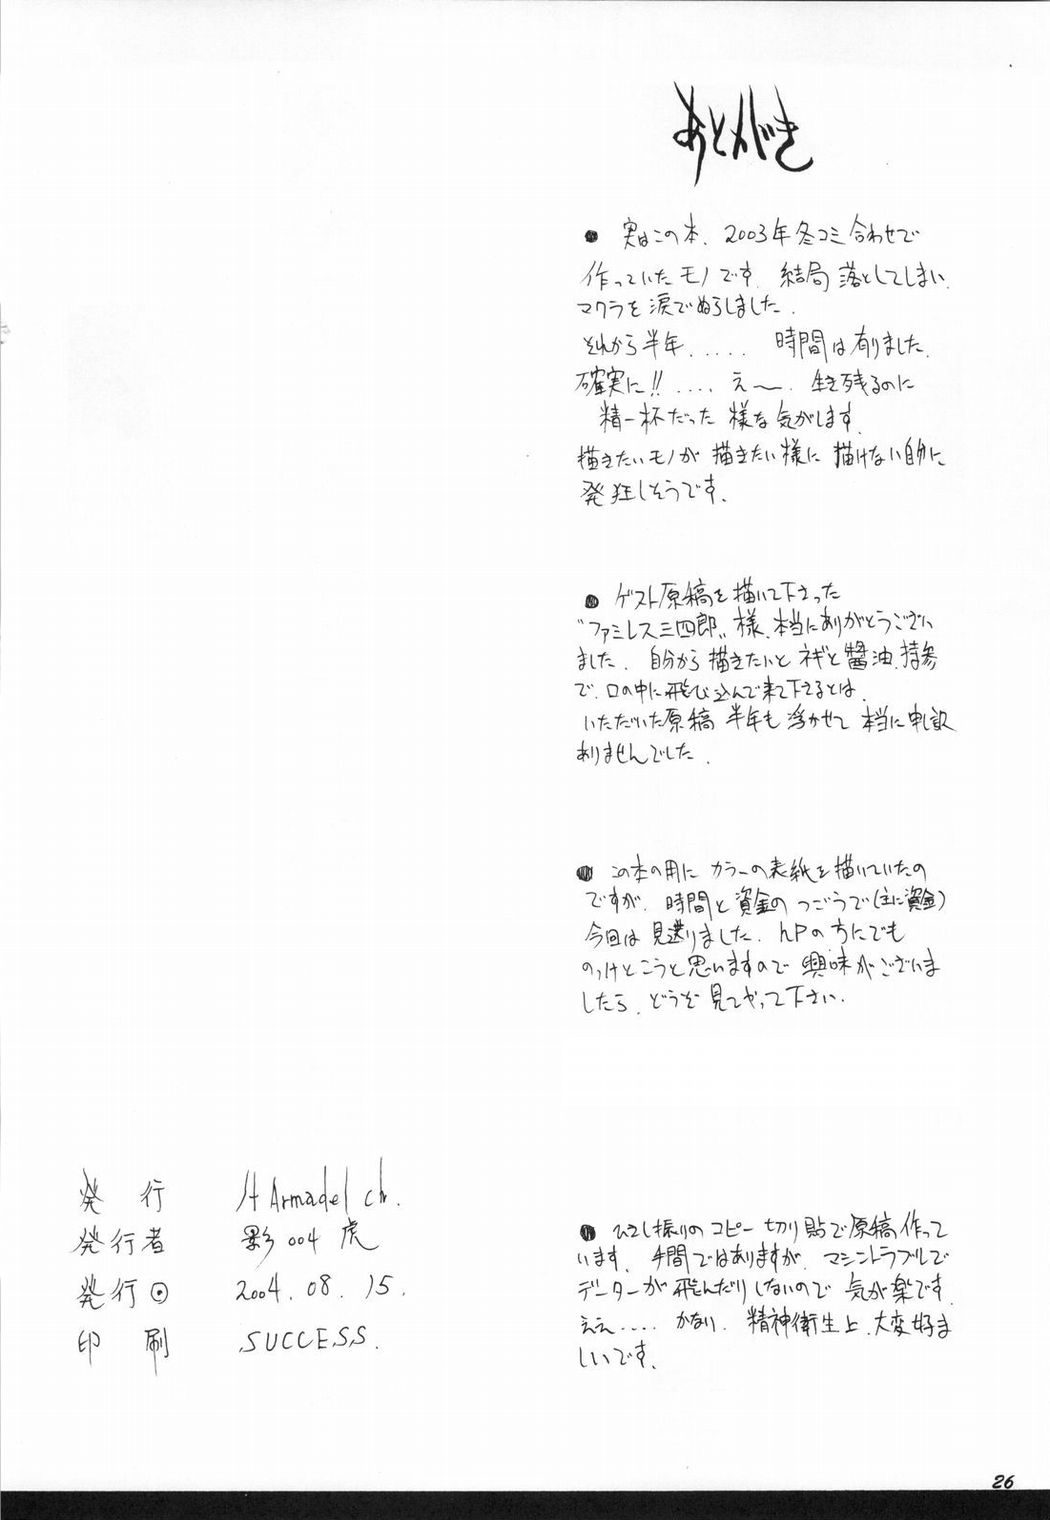 あとがき
● 実はこの本、2003年冬コミ合わせで
作っていたモノです。結局落としてしまい、
マクラを涙でぬらしました。
それから半年..... 時間は有りました。
確実に!!....え〜、生き残るのに
精一杯だった様な気がします。
描きたいモノが描きたい様に描けない自分に
発狂しそうです。
● ゲスト原稿を描いて下さった
"ファミレス三四郎"様、本当にありがとうござい
ました。自分から描きたいとネギと醤油持参
で、口の中に飛び込んで来て下さるとは。
いただいた原稿半年も浮かせて本当に申し訳
ありませんでした。
● この本の用にカラーの表紙を描いていたの
ですが、時間と資金のつごうで(主に資金)
今回は見送りました。hPの方にでも
のっけとこうと思いますので興味がございま
したら、どうぞ見てやって下さい。
● ひさし振りのコピー切り貼で原稿作って
います。手間ではありますが、マシントラブルで
データーが飛んだりしないので気が楽です。
ええ....かなり、精神衛生上、大変好ま
しいです。
発行 H Armadel ch.
発行者 影004虎
発行日 2004.08.15.
印刷 SUCCESS.
26